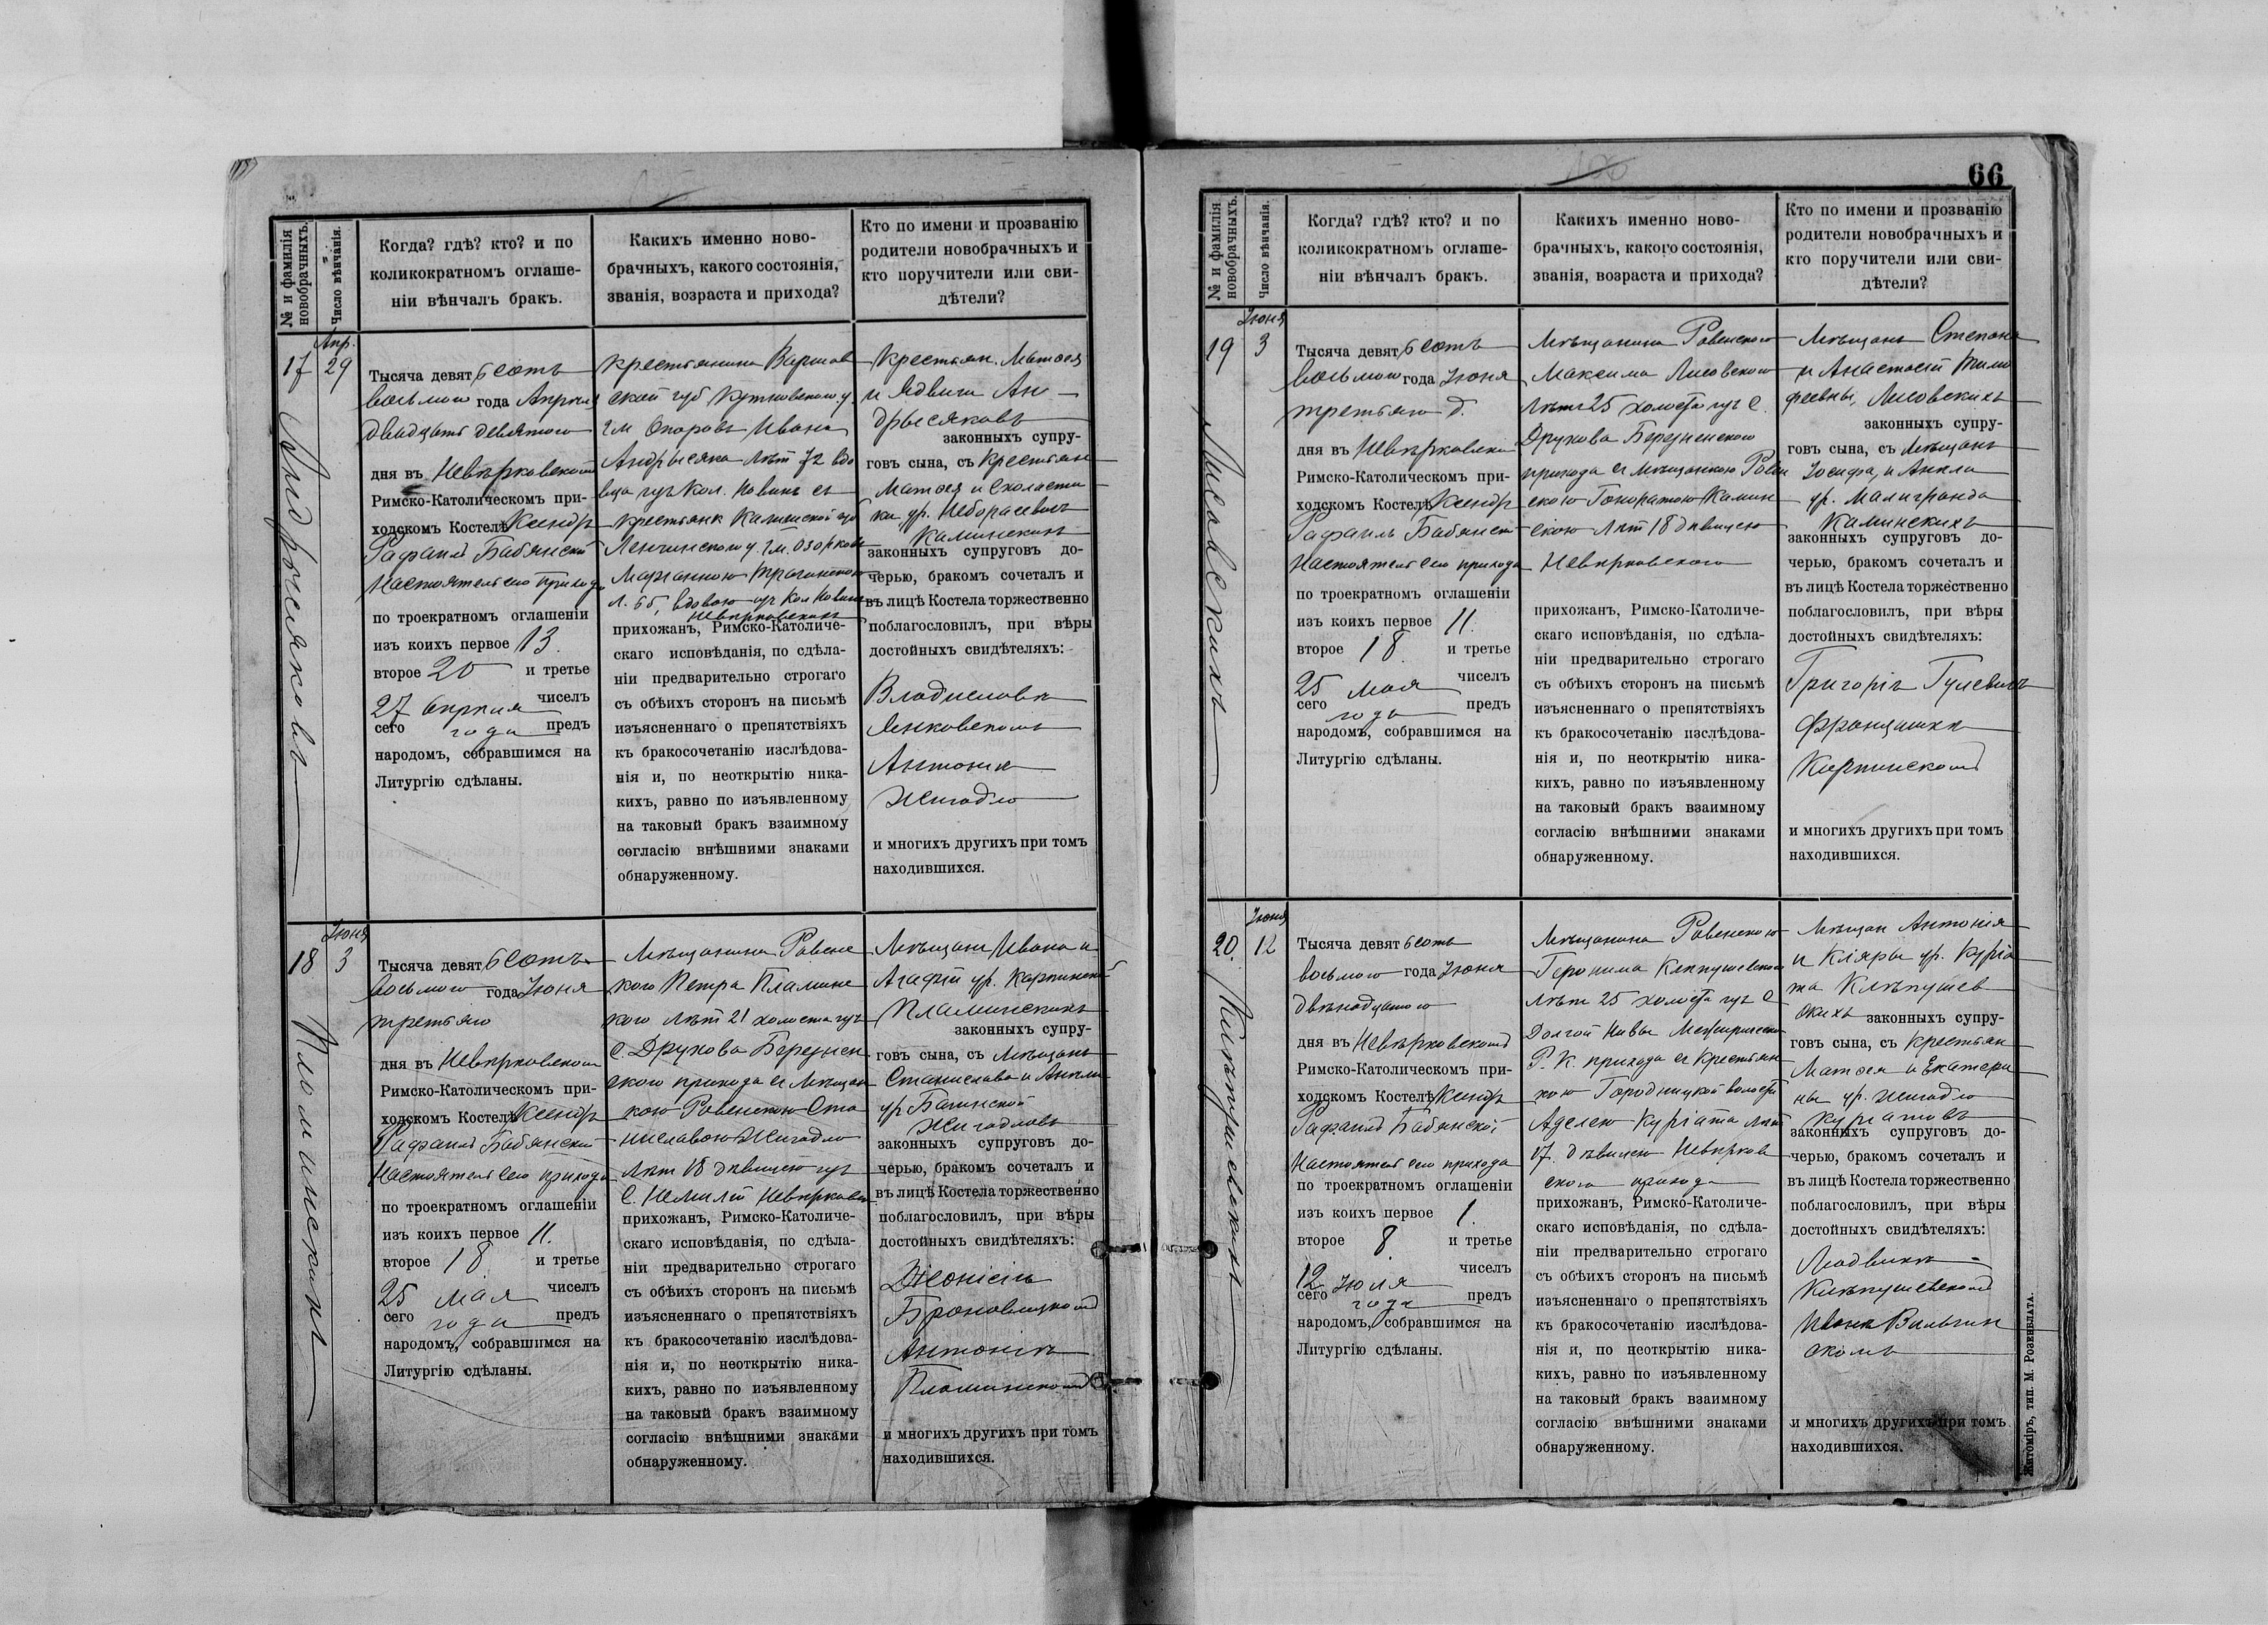 № и фамилія новобрачныхъ.
Число вѣнчанія.
Когда? гдѣ? кто? и по
коликократномъ оглаше-
ніи вѣнчалъ бракъ.
Какихъ именно ново-
брачныхъ, какого состоянія,
званія, возраста и прихода?
Кто по имени и прозванію
родители новобрачныхъ и
кто поручители или сви-
дѣтели?
17
Апр.
29
Андрысяковъ
Тысяча девятьсотъ
восьмого года Апрѣля
двадцать девятого
дня въ Невѣрковскомъ
Римско-Католическомъ при-
ходскомъ Костелѣ Ксендзъ
Рафаилъ Бабянскій
Настоятель сего прихода
по троекратномъ оглашеніи
изъ коихъ первое 13.
второе 20 и третье
27 Апрѣля чиселъ
сего года предъ
народомъ, собравшимся на
Литургію сдѣланы.
крестьянина Варшав
ской губ Кутновского у.
гм Опоровъ Ивана
Андрысяка лѣт 72 вдо
вца изъ Кол. Новинъ съ
крестьянк Калишской губ
Ленчинского у. гм. Озорковъ
Марианною
Л. 65, вдовою изъ Кол Новинъ
Невѣрковскихъ
прихожанъ, Римско-Католиче-
скаго исповѣданія, по сдѣла-
ніи предварительно строгаго
съ обѣихъ сторонъ на письмѣ
изъясненнаго о препятствіяхъ
къ бракосочетанію изслѣдова-
нія и, по неоткрытію ника-
кихъ, равно по изъявленному
на таковый бракъ взаимному
согласію внѣшними знаками
обнаруженному.
Крестьян. Матвея
и Ядвиги Ан-
дрысяковъ
законныхъ супру-
говъ сына, съ Крестьян
Матвея и Схоласти
ки ур.
Каминскихъ
законныхъ супруговъ до-
черью, бракомъ сочеталъ и
въ лицѣ Костела торжественно
поблагословилъ, при вѣры
достойныхъ свидѣтеляхъ:
Владиславѣ
Янковскомъ
Антонѣ
Жигадло
и многихъ другихъ при томъ
находившихся.
18
Іюня
3
Пломинскихъ
Тысяча девятьсотъ
восьмого года Іюня
третьяго
дня въ Невѣрковскомъ
Римско-Католическомъ при-
ходскомъ Костелѣ Ксендзъ
Рафаилъ Бабянскій
Настоятель сего прихода
по троекратномъ оглашеніи
изъ коихъ первое 11.
второе 18 и третье
25 мая чиселъ
сего года предъ
народомъ, собравшимся на
Литургію сдѣланы.
Мѣщанина Ровенс
кого Петра Пламинс
кого лѣт 21 холоста изъ
с. Друхова Березнен
ского прихода съ Мѣщан
кою Ровенскою Ста
ниславою Жигадло
лѣт 18 дѣвицею изъ
С. Невѣрковс
прихожанъ, Римско-Католиче-
скаго исповѣданія, по сдѣла-
ніи предварительно строгаго
съ обѣихъ сторонъ на письмѣ
изъясненнаго о препятствіяхъ
къ бракосочетанію изслѣдова-
нія и, по неоткрытію ника-
кихъ, равно по изъявленному
на таковый бракъ взаимному
согласію внѣшними знаками
обнаруженному.
Мѣщан Ивана и
Агафіи ур. Карпинск
Пламинскихъ
законныхъ супру-
говъ сына, съ Мѣщанъ
Станислава и Анели
ур
Жигадловъ
законныхъ супруговъ до-
черью, бракомъ сочеталъ и
въ лицѣ Костела торжественно
поблагословилъ, при вѣры
достойныхъ свидѣтеляхъ:
Діонісіѣ
Броновицкомъ
Антоніѣ
Пломинскомъ
и многихъ другихъ при томъ
находившихся.
66
№ и фамилія новобрачныхъ.
Число вѣнчанія.
Когда? гдѣ? кто? и по
коликократномъ оглаше-
ніи вѣнчалъ бракъ.
Какихъ именно ново-
брачныхъ, какого состоянія,
званія, возраста и прихода?
Кто по имени и прозванію
родители новобрачныхъ и
кто поручители или сви-
дѣтели?
19
Іюня
3
Лисовскихъ
Тысяча девятьсотъ
восьмого года Іюня
третьяго д.
дня въ Невѣрковском
Римско-Католическомъ при-
ходскомъ Костелѣ Ксендзъ
Рафаилъ Бабянскі
Настоятель сего прихода
по троекратномъ оглашеніи
изъ коихъ первое 11.
второе 18. и третье
25 мая чиселъ
сего года предъ
народомъ, собравшимся на
Литургію сдѣланы.
Мѣщанина Ровенского
Максима Лисовского
лѣт 25 холоста изъ с.
Друхова Березненского
прихода съ Мѣщанкою Ровен
скою Гоноратою Камин
скою лѣт 18 дѣвицею
Невѣрковского
прихожанъ, Римско-Католиче-
скаго исповѣданія, по сдѣла-
ніи предварительно строгаго
съ обѣихъ сторонъ на письмѣ
изъясненнаго о препятствіяхъ
къ бракосочетанію изслѣдова-
нія и, по неоткрытію ника-
кихъ, равно по изъявленному
на таковый бракъ взаимному
согласію внѣшними знаками
обнаруженному.
Мѣщанъ Степана
и Анастасіи Тимо
феевны, Лисовскихъ
законныхъ супру-
говъ сына, съ Мѣщанъ
Іосифа, и Анели
ур.
Каминскихъ
законныхъ супруговъ до-
черью, бракомъ сочеталъ и
въ лицѣ Костела торжественно
поблагословилъ, при вѣры
достойныхъ свидѣтеляхъ:
Григоріѣ Гулевичъ
Францишкѣ
Карпинскомъ
и многихъ другихъ при томъ
находившихся.
20.
Іюня
12
Тысяча девятьсотъ
восьмого года Іюня
двѣнадцатого
дня въ Невѣрковскомъ
Римско-Католическомъ при-
ходскомъ Костелѣ Ксендзъ
Рафаилъ Бабянскі
Настоятель сего прихода
по троекратномъ оглашеніи
изъ коихъ первое 1.
второе 8. и третье
12 Іюля чиселъ
сего года предъ
народомъ, собравшимся на
Литургію сдѣланы.
Мѣщанина Ровенского
Геронима
лѣт 25 холоста изъ с
Долгой Нивы Межирическ
Р. К. прихода съ Крестьян
кою Городницкой волости
Аделею Куріата лѣт
17. дѣвицею Невѣрков
ского прихода
прихожанъ, Римско-Католиче-
скаго исповѣданія, по сдѣла-
ніи предварительно строгаго
съ обѣихъ сторонъ на письмѣ
изъясненнаго о препятствіяхъ
къ бракосочетанію изслѣдова-
нія и, по неоткрытію ника-
кихъ, равно по изъявленному
на таковый бракъ взаимному
согласію внѣшними знаками
обнаруженному.
Мѣщан Антонія
и Кляры ур. Курія
та Клѣпушев
скихъ законныхъ супру-
говъ сына, съ Крестьян
Матвея и Екатери
ны ур. Жигадло
Куріатовъ
законныхъ супруговъ до-
черью, бракомъ сочеталъ и
въ лицѣ Костела торжественно
поблагословилъ, при вѣры
достойныхъ свидѣтеляхъ:
Людвикѣ
Клѣпушевскомъ
Иванѣ Вильчин
скомъ
и многихъ другихъ при томъ
находившихся.
Житоміръ, тип. М. Розенблата.